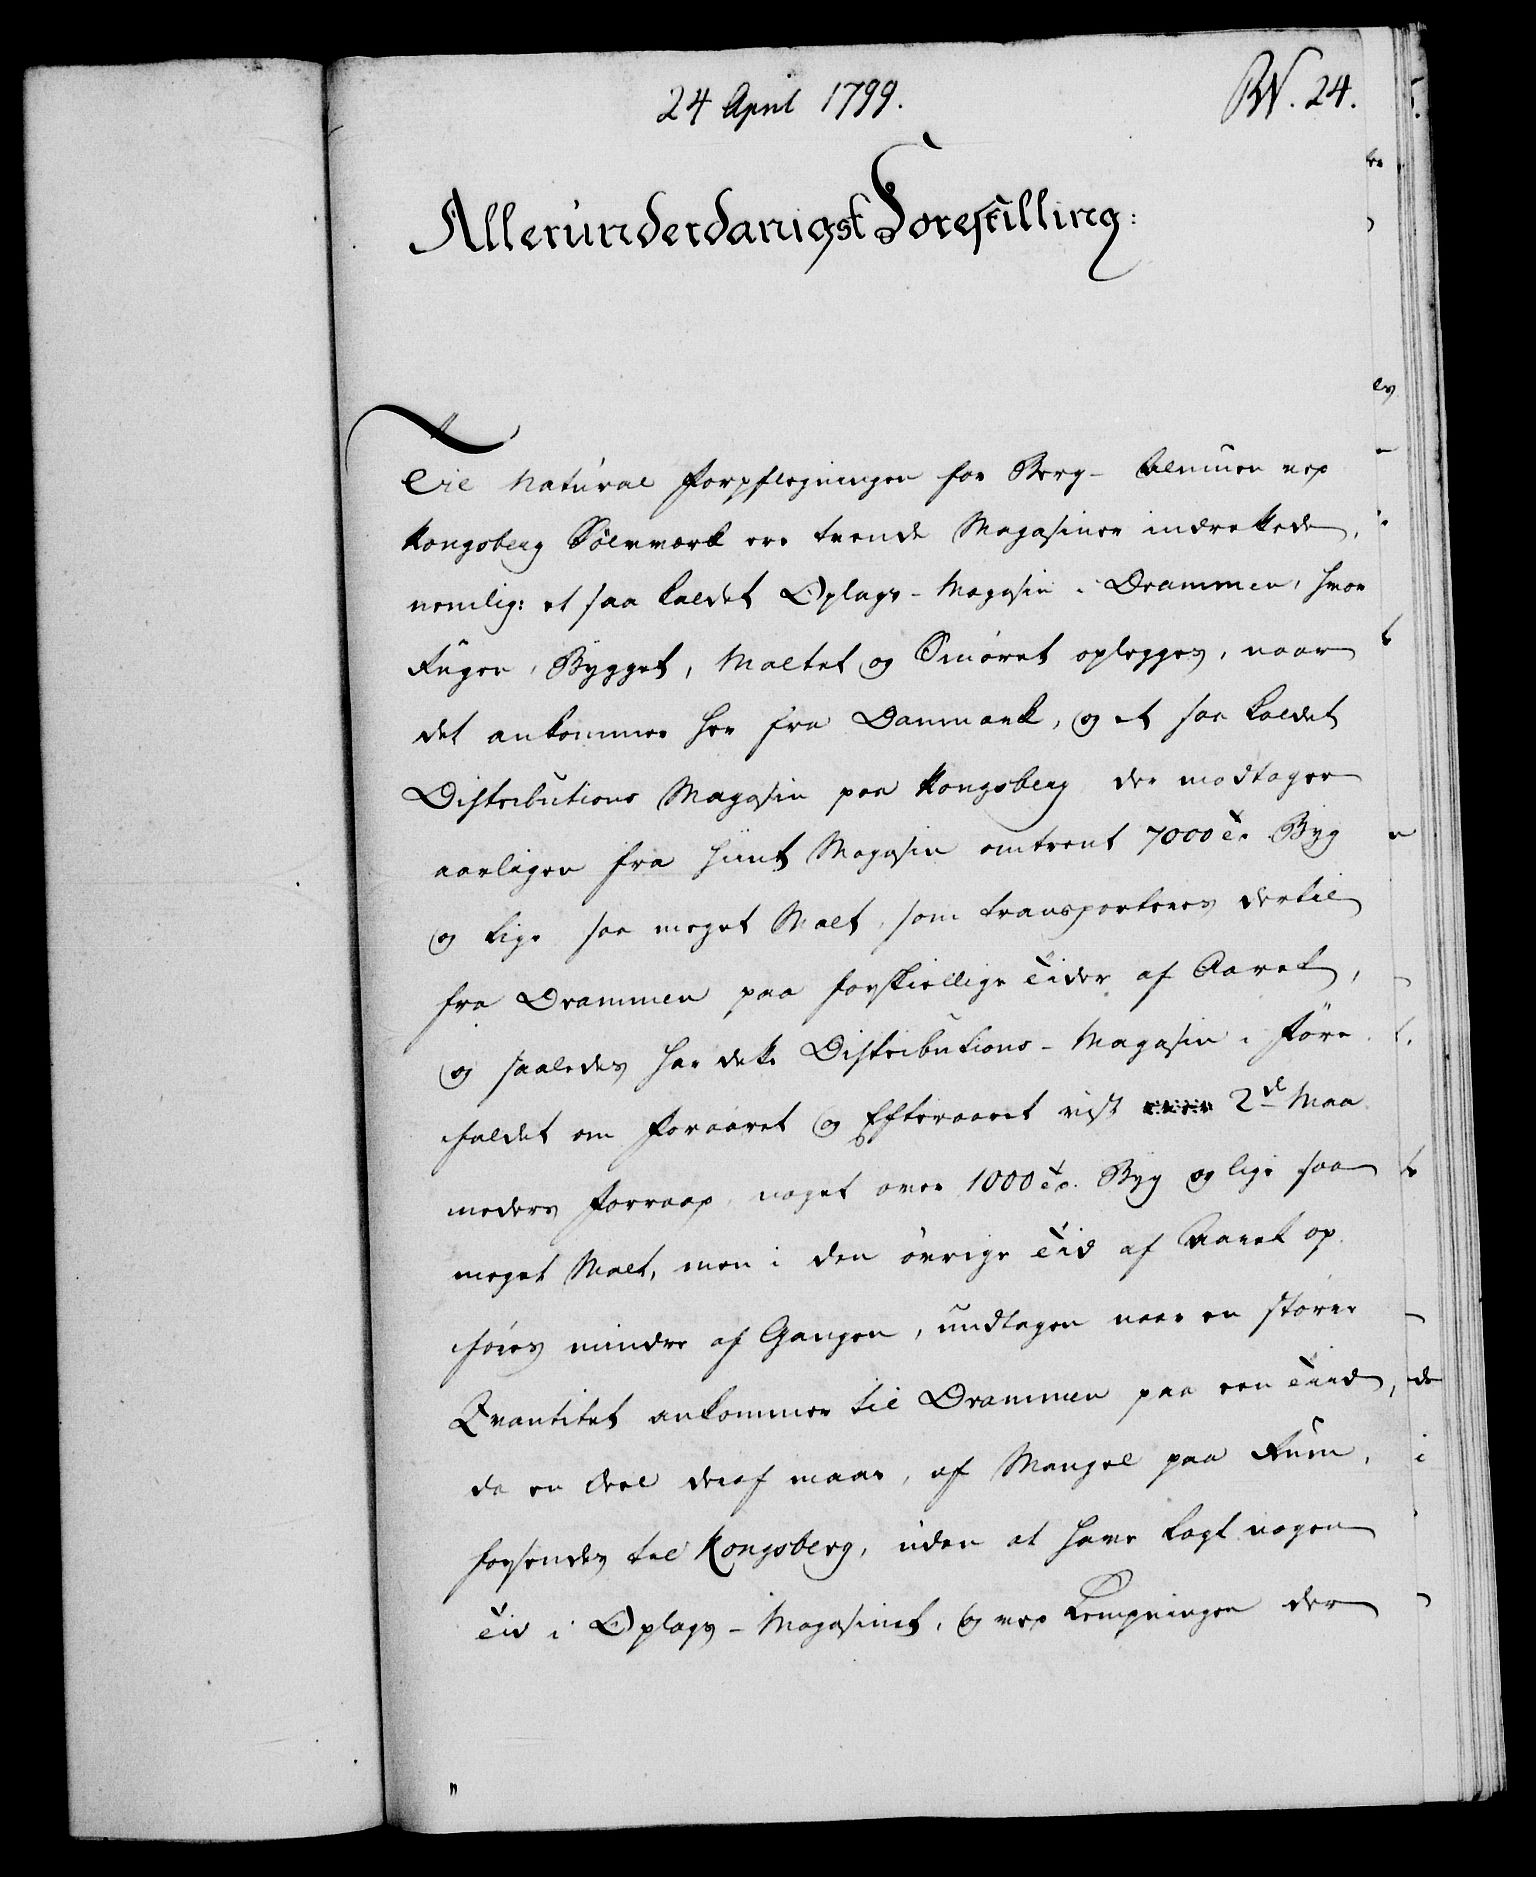 24 April 1799.
RN. 24.
Allerunderdanigst Forestilling:
Til Natural Forpflegningen for Berg-Almuen ved
Kongsberg Sölvværk ere tvende Magasiner indrettede,
nemlig: et saa kaldet Oplags-Magasin i Drammen, hvor
Rugen, Bygget, Maltet og Smöret oplegges, naar
det ankommer her fra Danmark, og et saa kaldet
Distributions Magasin paa Kongsberg der modtager
aarligen fra hiint Magasin omtrent 7000 Tr. Byg
og lige saa meget Malt, som transporteres dertil
fra Drammen paa forskiellige Tider af Aaret,
og saaledes har dette Distributions-Magasin i Före-
faldet om Foraaret og Efteraaret vist 2de Maa-
neders Forraad, noget over 1000 Tr. Byg og lige saa
meget Malt, men i den övrige Tid af Aaret op-
föres mindre af Gangen, undtagen naar en större
Qvantitet ankommer til Drammen paa een Tiid,
da en Deel deraf maae, af Mangel paa Rum,
forsendes til Kongsberg, uden at have lagt nogen
Tid i Oplags-Magasinet, og ved Lempningen der